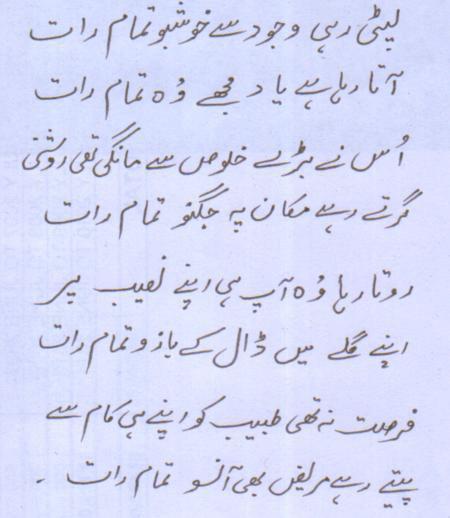 لپٹی رہی وجود سے خوشبو تمام رات
آتا رہا ہے یاد مجھے وُہ تمام رات
اُس نے بڑے خلوص سے مانگی تھی روشنی
گرتے رہے مکان پہ جگنو تمام رات
روتا رہا وُہ آپ ہی اپنے نصیب پر
اپنے گلے میں ڈال کے بازو تمام رات
فرصت نہ تھی طبیب کو اپنے ہی کام سے
پیتے رہے مریض بھی آنسو تمام رات ۔